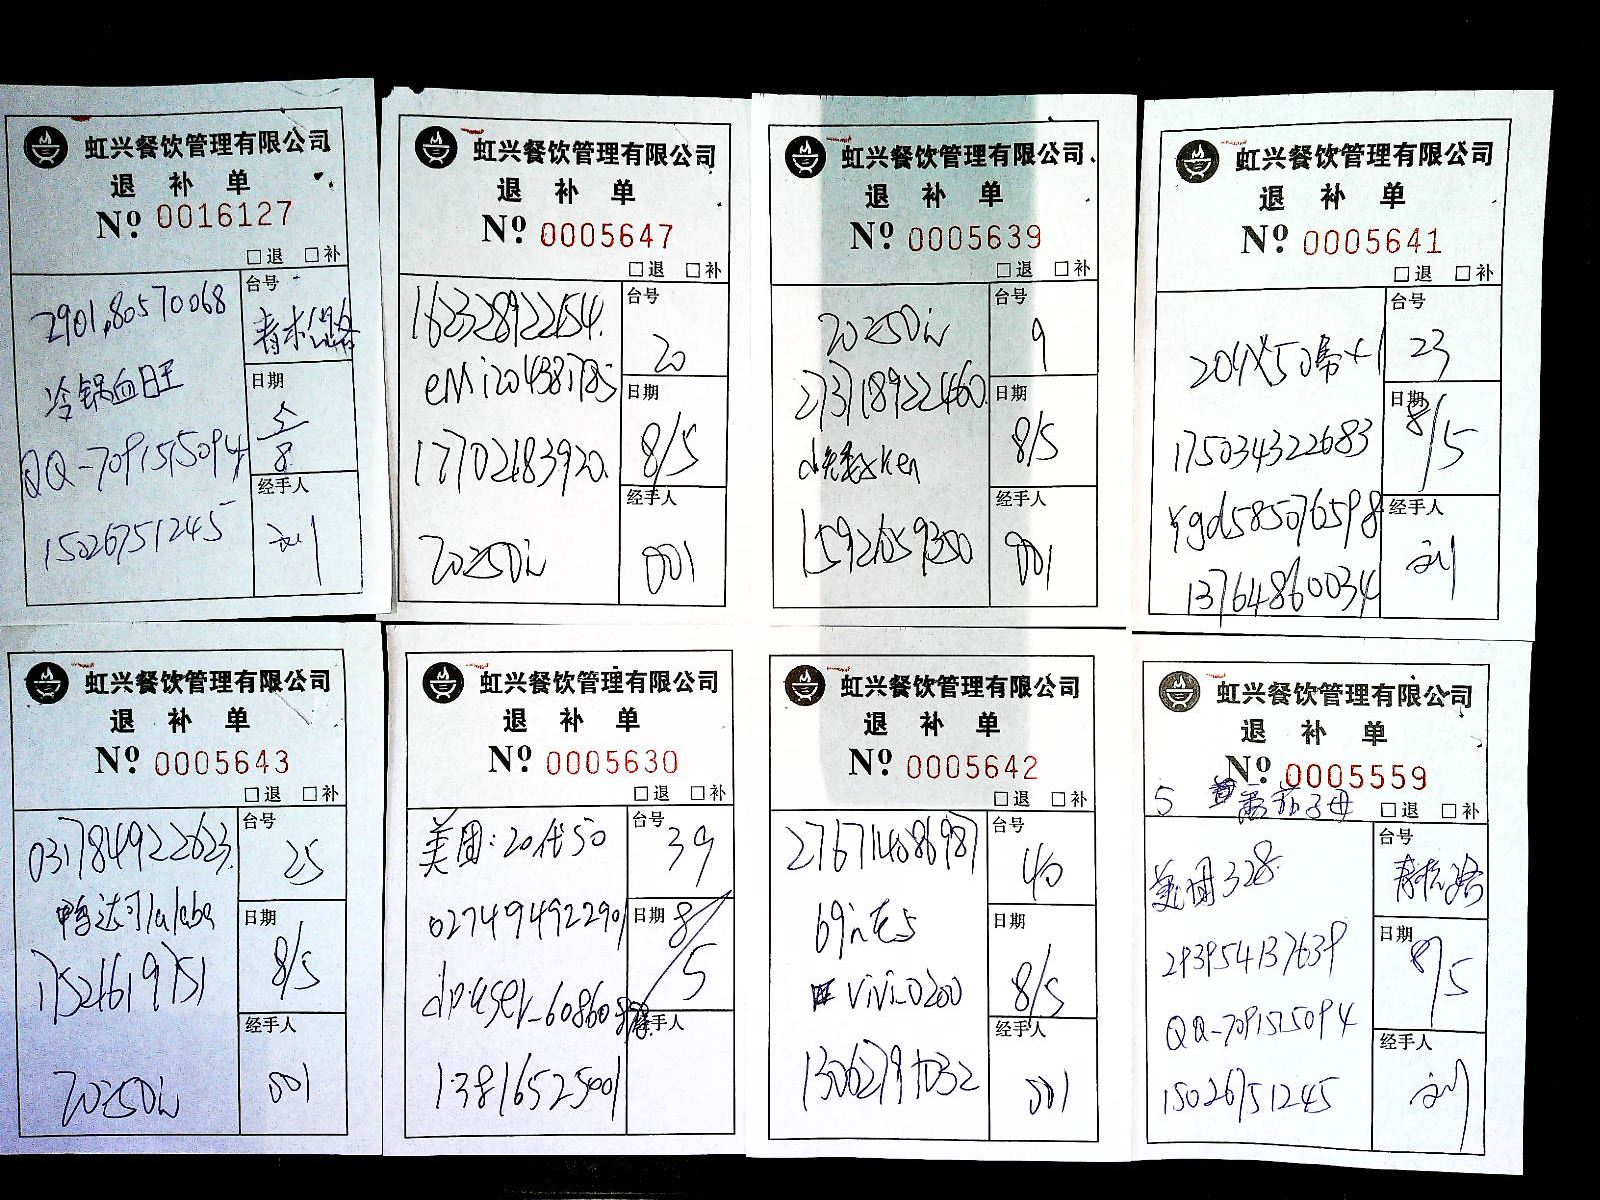 虹兴餐饮管理有限公司
退 补 单
Nº 0016127
□退 □补
台号
290180570068
日期
5/8
冷锅血旺
QQ-7091515094
经手人
刘
15026751245
虹兴餐饮管理有限公司
退 补 单
Nº 0005647
□退 □补
162328922154
台号
20
eMi204381785
日期
8/5
17702183920
经手人
001
虹兴餐饮管理有限公司
退 补 单
Nº 0005639
□退 □补
台号
9
273718922460
日期
8/5
15921659300
经手人
001
虹兴餐饮管理有限公司
退 补 单
Nº 0005641
□退 □补
台号
23
175034322683
日期
8/5
ygd585076598
经手人
刘
13764860034
虹兴餐饮管理有限公司
退 补 单
Nº 0005643
□退 □补
031784922623
台号
25
日期
8/5
17521619751
经手人
001
虹兴餐饮管理有限公司
退 补 单
Nº 0005630
□退 □补
美团:20代50
台号
39
027494922901
日期
8/5
经手人
13816525001
虹兴餐饮管理有限公司
退 补 单
Nº 0005642
□退 □补
276714086987
台号
40
日期
8/5
vivi_0200
经手人
001
虹兴餐饮管理有限公司
退 补 单
Nº 0005559
5
□退 □补
美团328
台号
293954137639
日期
8/5
QQ-7091515094
经手人
刘
15026751245